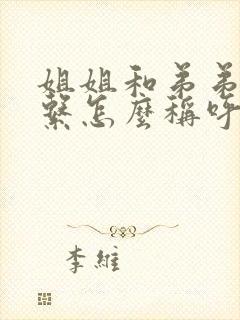 姐姐和弟弟
繫怎麼稱呼
李維